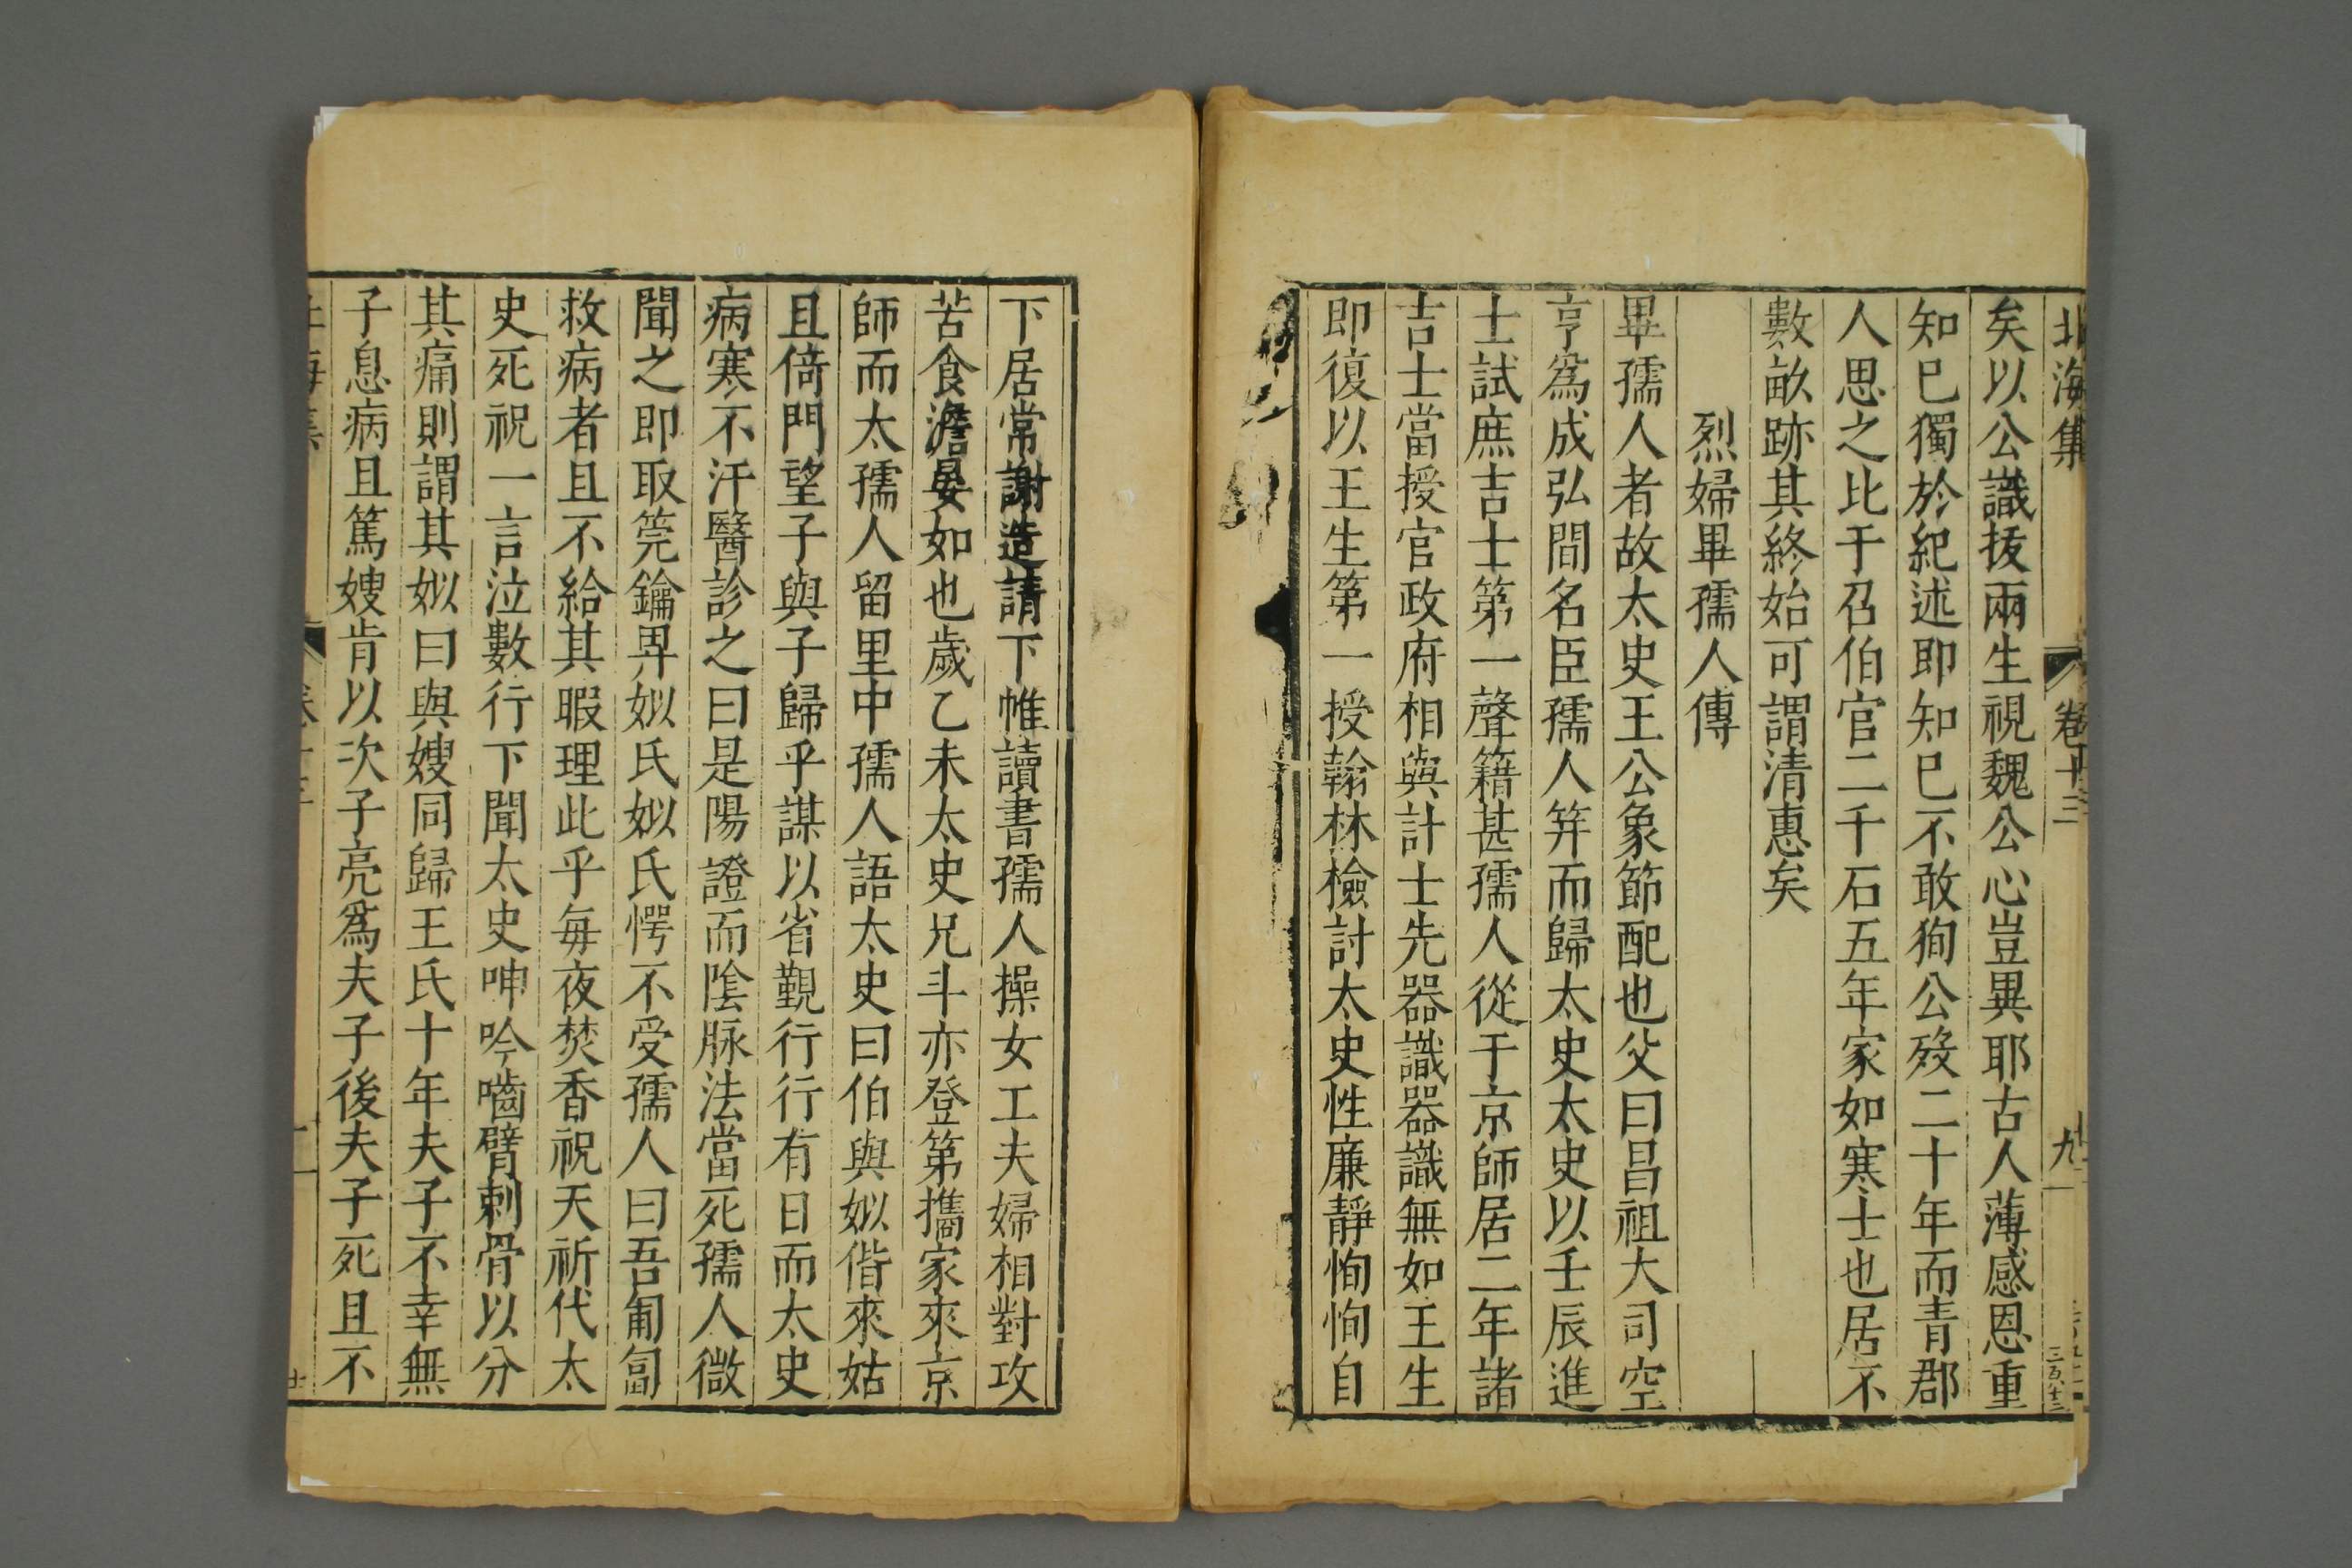 北海集 卷十三 九
矣以公識抜兩生視魏公心豈異耶古人薄感恩重
知巳獨於紀述即知巳不敢狥公歿二十年而青郡
人思之比于召伯官二千石五年家如寒士也居不
數畝跡其終始可謂清惠矣
烈婦畢孺人傳
畢孺人者故太史王公象節配也父曰昌祖大司空
亨爲成弘間名臣孺人笄而歸太史太史以壬辰進
士試庶吉士第一聲籍甚孺人從于京師居二年諸
吉士當授官政府相與計士先器識器識無如王生
即復以王生第一授翰林檢討太史性廉靜恂恂自
下居常謝造請下帷讀書孺人操女工夫婦相對攻
苦食澹晏如也歲乙未太史兄斗亦登第攜家來京
師而太孺人留里中孺人語太史曰伯與姒偕來姑
且倚門望子與子歸乎謀以省覲行行有日而太史
病寒不汗醫診之曰是陽證而陰脉法當死孺人微
聞之即取筦鑰畀姒氏姒氏愕不受孺人曰吾匍匐
救病者且不給其暇理此乎每夜焚香祝天祈代太
史死祝一言泣數行下聞太史呻吟嚙臂刺骨以分
其痛則謂其姒曰與嫂同歸王氏十年夫子不幸無
子息病且篤嫂肯以次子亮爲夫子後夫子死且不